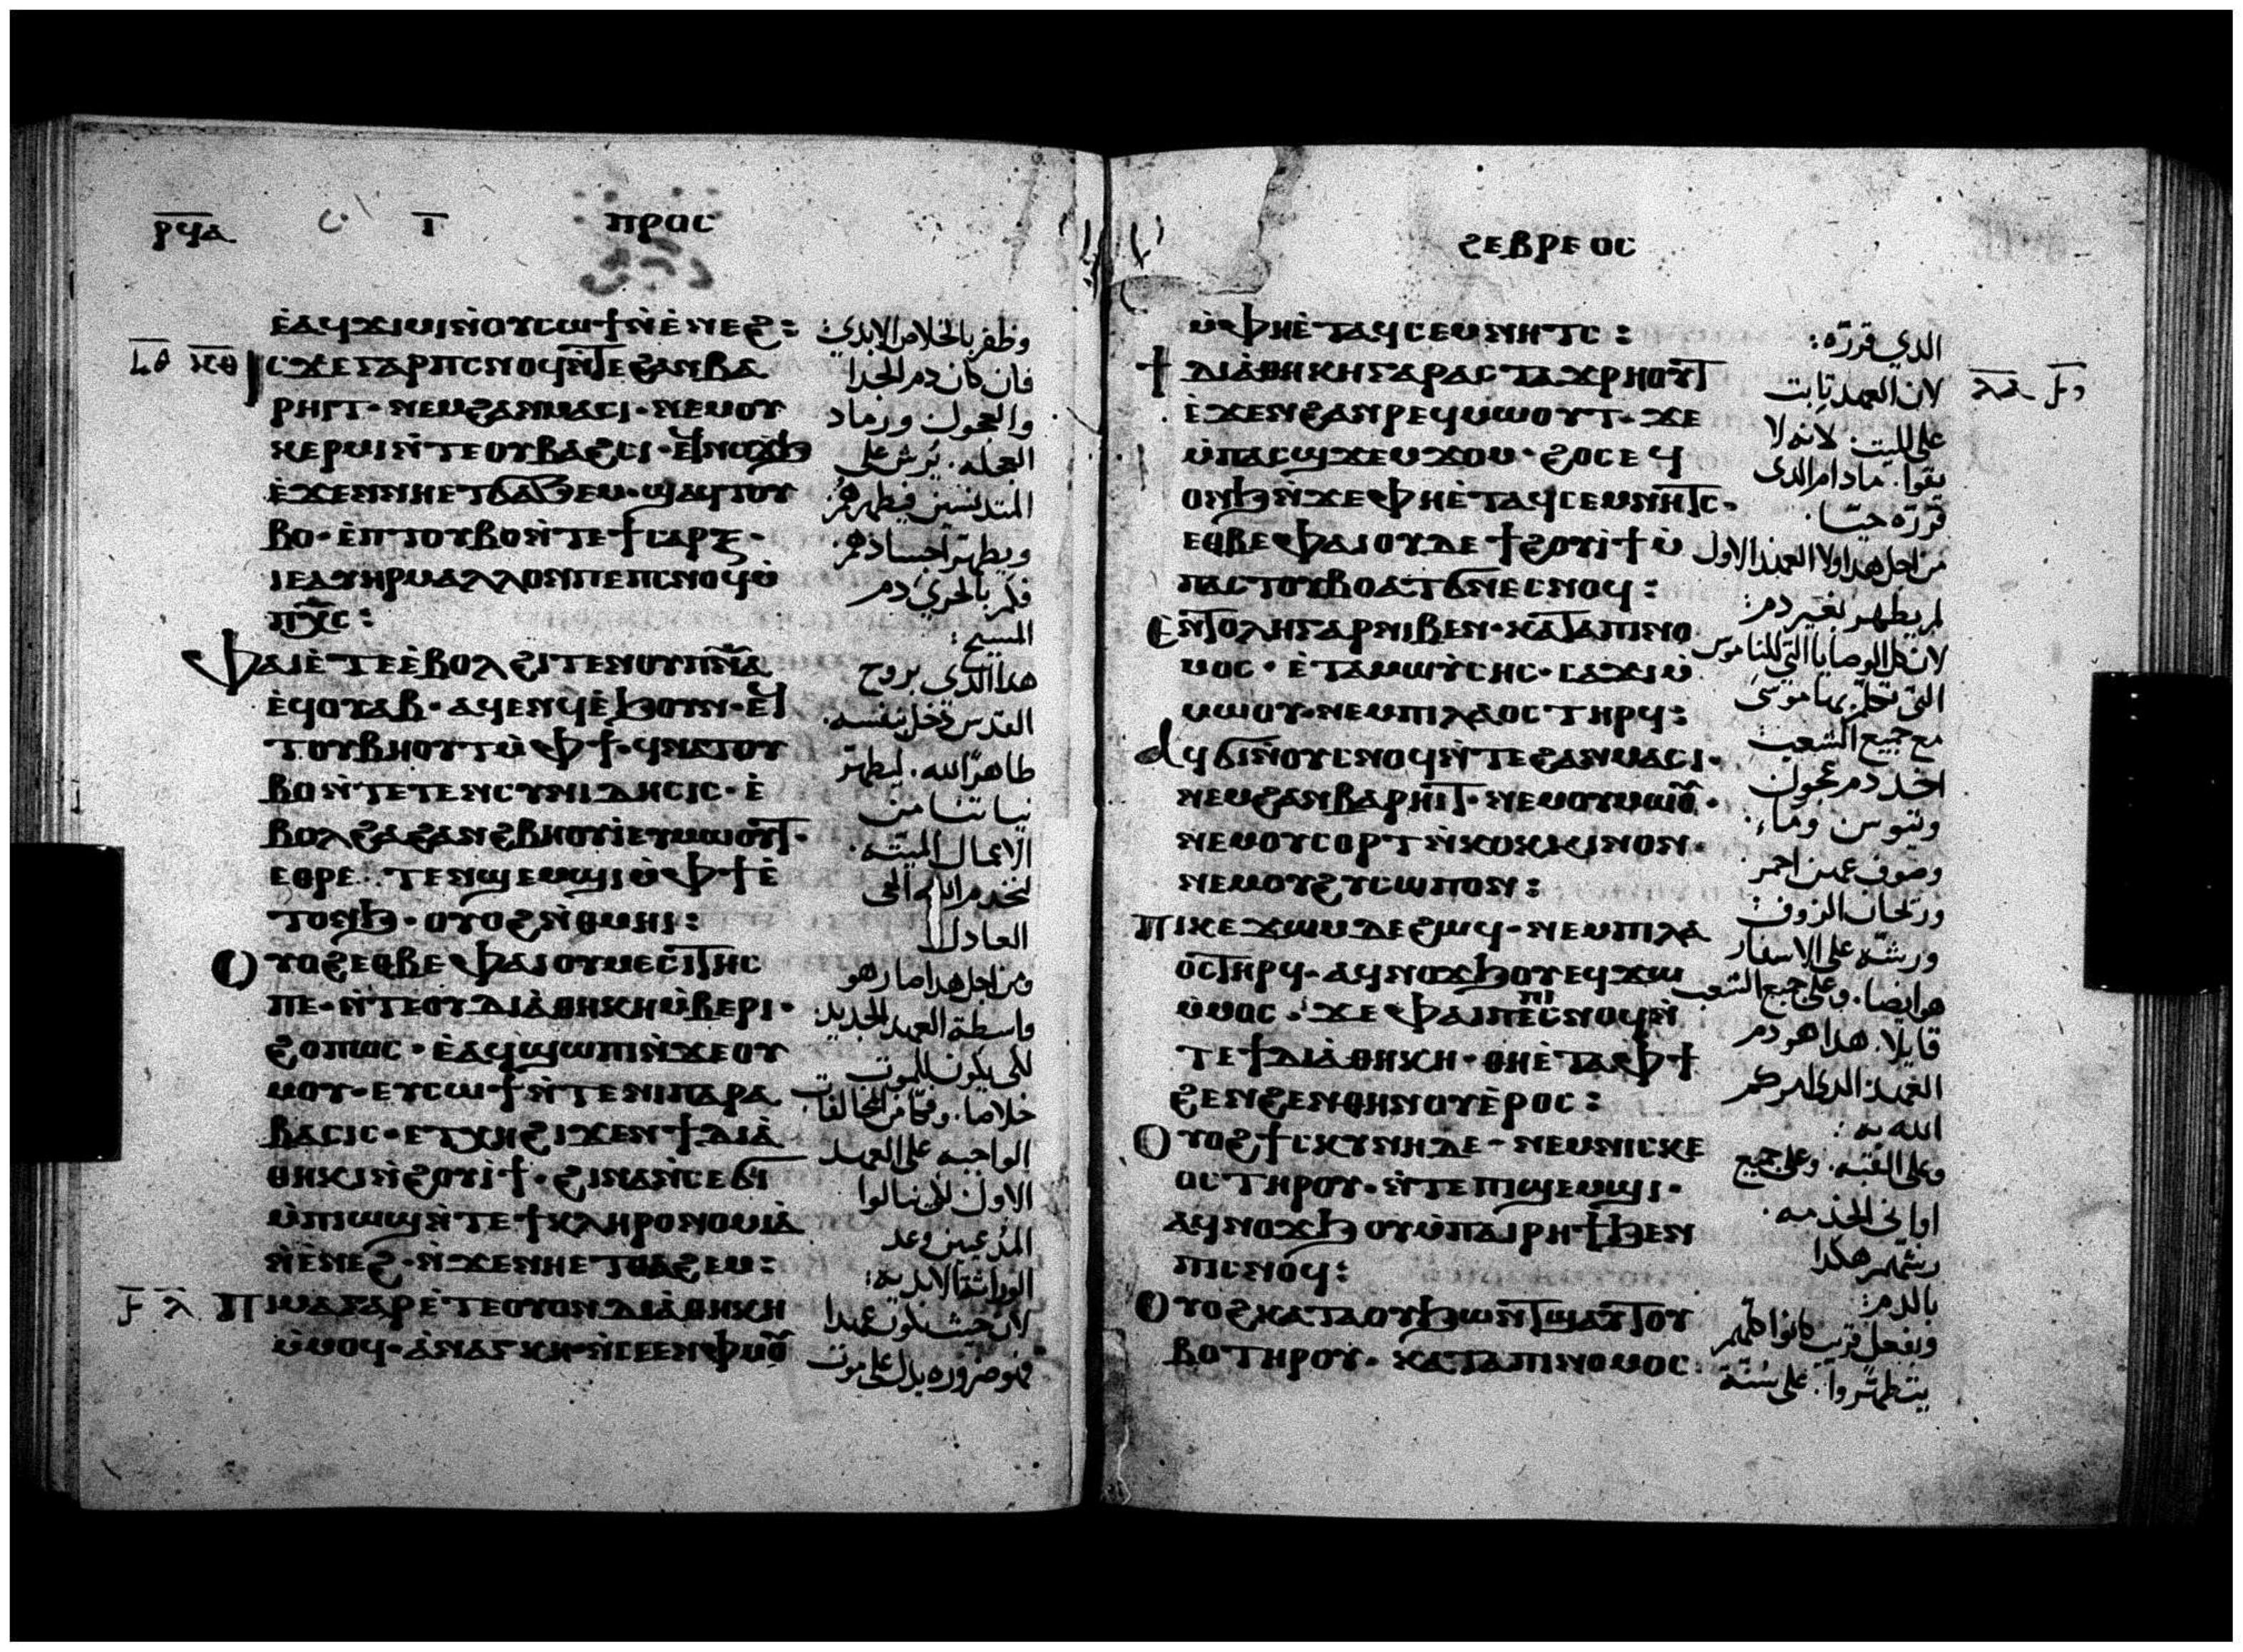 ⲣϥⲁ ⲓ ⲡⲣⲟⲥ
ⲉ̀ⲁϥϫⲓⲙⲓⲛ̀ⲟⲩⲥⲱϯⲛ̀ⲉ̀ⲛⲉϩ:
ⲓⲥϫⲉⲅⲁⲣⲡⲥⲛⲟϥⲛ̀ⲧⲉϩⲁⲛⲃⲁ
ⲣⲏⲓⲧ· ⲛⲉⲙϩⲁⲛⲙⲁⲥⲓ· ⲛⲉⲙⲟⲩ
ⲕⲉⲣⲙⲓⲛ̀ⲧⲉⲟⲩⲃⲁϩⲥⲓ·
ⲉ̀ϫⲉⲛⲛⲏⲉⲧϭⲁϧⲉⲙ· ϣⲁϥⲧⲟⲩ
ⲃⲟ· ⲉ̀ⲡⲧⲟⲩⲃⲟⲛ̀ⲧⲉϯⲥⲁⲣⲝ·
ⲓⲉⲁⲩⲏⲣⲙⲁⲗⲗⲟⲛⲡⲉⲡⲥⲛⲟϥⲙ̀
ⲡⲭ̅ⲥ̅:
ⲫⲁⲓⲉ̀ⲧⲉⲉ̀ⲃⲟⲗϩⲓⲧⲉⲛⲟⲩⲡⲛ̅ⲁ̅
ⲉϥⲟⲩⲁⲃ· ⲁϥⲉⲛϥⲉ̀ϧⲟⲩⲛ· ⲉϥ
ⲧⲟⲩⲃⲏⲟⲩⲧⲙ̀ⲫϯ· ϥⲛⲁⲧⲟⲩ
ⲃⲟⲛ̀ⲧⲉⲧⲉⲛⲥⲩⲛⲓⲇⲏⲥⲓⲥ· ⲉ̀
ⲃⲟⲗϩⲁϩⲁⲛϩⲃⲏⲟⲩⲓ̀ⲉⲩⲙⲱⲟⲩⲧ·
ⲉⲑⲣⲉ ⲧⲉⲛϣⲉⲙϣⲓⲙ̀ⲫϯⲉ̀
ⲧⲟⲛϧ· ⲟⲩⲟϩⲛ̀ⲑⲙⲏⲓ:
ⲟⲩⲟϩⲉⲑⲃⲉⲫⲁⲓⲟⲩⲙⲉⲥⲓⲧⲏⲥ
ⲡⲉ· ⲛ̀ⲧⲉⲟⲩⲇⲓⲁ̀ⲑⲏⲕⲏⲙ̀ⲃⲉⲣⲓ·
ϩⲟⲡⲱⲥ· ⲉ̀ⲁϥϣⲱⲡⲓⲛ̀ϫⲉⲟⲩ
ⲙⲟⲩ· ⲉⲩⲥⲱϯⲛ̀ⲧⲉⲛⲓⲡⲁⲣⲁ
ⲃⲁⲥⲓⲥ· ⲉⲧⲭⲏϩⲓϫⲉⲛϯⲇⲓⲁ̀
ⲑⲏⲕⲓⲛ̀ϩⲟⲩⲓϯ· ϩⲓⲛⲁⲛ̀ⲥⲉϭⲓ
ⲙ̀ⲡⲓⲱϣⲛ̀ⲧⲉϯⲕⲗⲏⲣⲟⲛⲟⲙⲓⲁ̀
ⲛ̀ⲉ̀ⲛⲉϩ· ⲛ̀ϫⲉⲛⲏⲉⲧⲑⲁϩⲉⲙ:
ⲡⲓⲙⲁⲅⲁⲣⲉ̀ⲧⲉⲟⲩⲟⲛⲇⲓⲁ̀ⲑⲏⲕⲏ
ⲙ̀ⲙⲟϥ· ⲁ̀ⲛⲁⲅⲕⲏ· ⲛ̀ⲥⲉⲉⲛⲫⲙⲟⲩ
وظفر بالخلاص الابدي:
فان كان دم الجدا
والعجول ورماد
العجله. يُرش على
المتدنسين فيطهرهم
ويطهر اجسادهم:
فكم بالحري دم
المسيح:
هدا الدي بروح
القدس دخل بنفسه.
طاهرًا لله. ليطهر
نياتنا من
الاعمال الميته.
لنخدم الله الحي
العادل
ومن اجل هدا صار هو
واسطة العهد الجديد:
لكى يكون بالموت
خلاصا.
الواجبه على العهد
الاول لكى ينالوا
المدعيين وعد
الوراثة الابديه:
ϩⲉⲃⲣⲉⲟⲥ
ⲙ̀ⲫⲏⲉ̀ⲧⲁϥⲥⲉⲙⲛⲏⲧⲥ:
ϯⲇⲓⲁ̀ⲑⲏⲕⲏⲅⲁⲣⲁⲥⲧⲁϫⲣⲏⲟⲩⲧ
ⲉ̀ϫⲉⲛϩⲁⲛⲣⲉϥⲙⲱⲟⲩⲧ· ϫⲉ
ⲙ̀ⲡⲁⲥϣϫⲉⲙϫⲟⲙ· ϩⲟⲥⲉϥ
ⲟⲛϧⲛ̀ϫⲉⲫⲏⲉ̀ⲧⲁϥⲥⲉⲙⲛⲏⲧⲥ·
ⲉⲑⲃⲉⲫⲁⲓⲟⲩⲇⲉϯϩⲟⲩⲓ̀ϯⲙ̀
ⲡⲁⲥⲧⲟⲩⲃⲟⲁⲧϭⲛⲉⲥⲛⲟϥ:
ⲉⲛⲧⲟⲗⲏⲅⲁⲣⲛⲓⲃⲉⲛ· ⲕⲁⲧⲁⲡⲓⲛⲟ
ⲙⲟⲥ· ⲉ̀ⲧⲁⲙⲱⲩ̀ⲥⲏⲥ· ⲥⲁϫⲓⲙ̀
ⲙⲱⲟⲩ· ⲛⲉⲙⲡⲓⲗⲁⲟⲥⲧⲏⲣϥ:
ⲁϥϭⲓⲛ̀ⲟⲩⲥⲛⲟϥⲛ̀ⲧⲉϩⲁⲛⲙⲁⲥⲓ·
ⲛⲉⲙϩⲁⲛⲃⲁⲣⲏⲓⲧ· ⲛⲉⲙⲟⲩⲙⲱⲟⲩ·
ⲛⲉⲙⲟⲩⲥⲟⲣⲧⲛ̀ⲕⲟⲕⲕⲓⲛⲟⲛ·
ⲛⲉⲙⲟⲩϩⲩⲥⲱⲡⲟⲛ:
ⲡⲓⲕⲉϫⲱⲙⲇⲉϩⲱϥ· ⲛⲉⲙⲡⲓⲗⲁ
ⲟⲥⲧⲏⲣϥ· ⲁϥⲛⲟϫϧⲟⲩⲉϥϫⲱ
ⲙ̀ⲙⲟⲥ· ϫⲉⲫⲁⲓⲡⲉⲡⲓⲥⲛⲟϥⲛ̀
ⲧⲉϯⲇⲓⲁ̀ⲑⲏⲕⲏ· ⲑⲏⲉ̀ⲧⲁⲫϯ
ϩⲉⲛϩⲉⲛⲑⲏⲛⲟⲩⲉ̀ⲣⲟⲥ:
ⲟⲩⲟϩϯⲥⲕⲩⲛⲏⲇⲉ· ⲛⲉⲙⲛⲓⲥⲕⲉ
ⲟⲥⲧⲏⲣⲟⲩ· ⲛ̀ⲧⲉⲡⲓϣⲉⲙϣⲓ·
ⲁϥⲛⲟϫϧⲟⲩⲙ̀ⲡⲁⲓⲣⲏϯϧⲉⲛ
ⲡⲓⲥⲛⲟϥ:
ⲟⲩⲟϩⲕⲁⲧⲁⲟⲩϧⲱⲛⲧϣⲁⲩⲧⲟⲩ
ⲃⲟⲧⲏⲣⲟⲩ· ⲕⲁⲧⲁⲡⲓⲛⲟⲙⲟⲥ
الدي قرره:
لان العهد ثابت
على الميت. لانه لا
يقوا. مادام الدى
قرره حيًا.
من اجل هدا ولا العهد الاول
لم يطهر بغير دم:
لان كل الوصايا التي للناموس
التي تكلم بها موسى
مع جميع الشعب
اخد دم عجول
وتيوس وماء.
وصوف احمر.
الزوفا
ورشه على الاسفار
هو ايضا. وعلى جميع الشعب
قايلا. هدا هو دم
العهد الدى امركم
الله به:
وعلى القبه. وعلى جميع
اوانى الخدمه.
رشهم هكدا
بالدم:
يتطهروا. على سنة